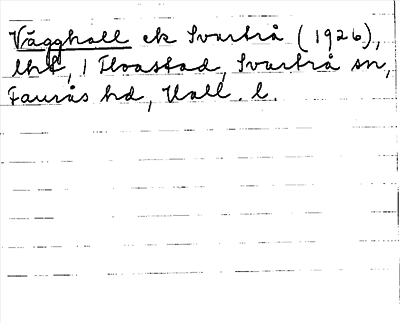 Vägghall ek Svartrå (1926),
lht, 1 Ilvastad, Svartrå sn,
Faurås hd, Hall. l.